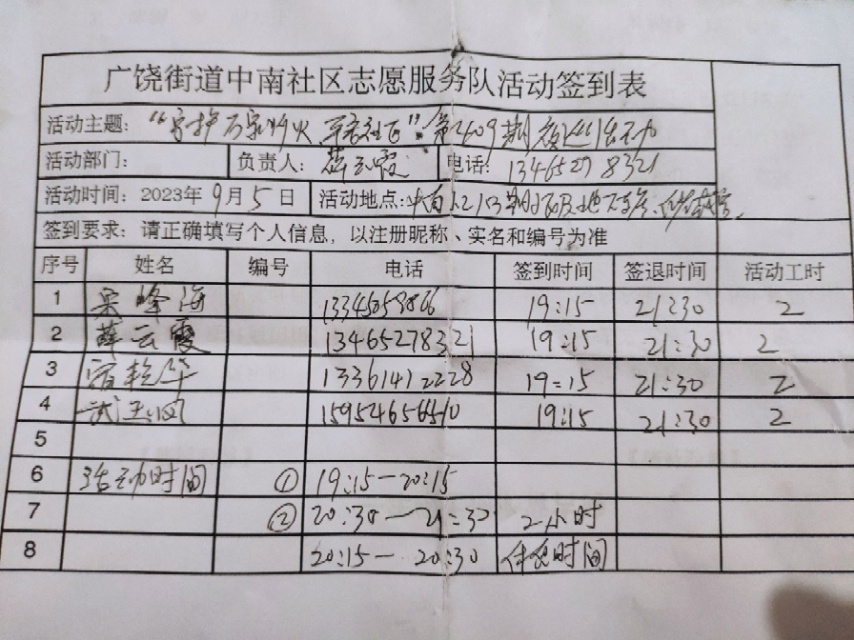 广饶街道中南社区志愿服务队活动签到表
活动主题: “守护万家灯火 平安社区”: 第2409期夜巡活动
活动部门: 负责人: 薛云霞 电话: 13465278321
活动时间: 2023年9月5日 活动地点: 中南
签到要求: 请正确填写个人信息, 以注册昵称、实名和编号为准
序号 姓名 编号 电话 签到时间 签退时间 活动工时
1 峰海 19:15 21:30 2
2 薛云霞 13465278321 19:15 21:30 2
3 宿艳华 13361412228 19:15 21:30 2
4 武玉凤 15954656510 19:15 21:30 2
5
6 活动时间 ① 19:15—20:15
7 ② 20:30—21:30 2小时
8 20:15—20:30 休息时间